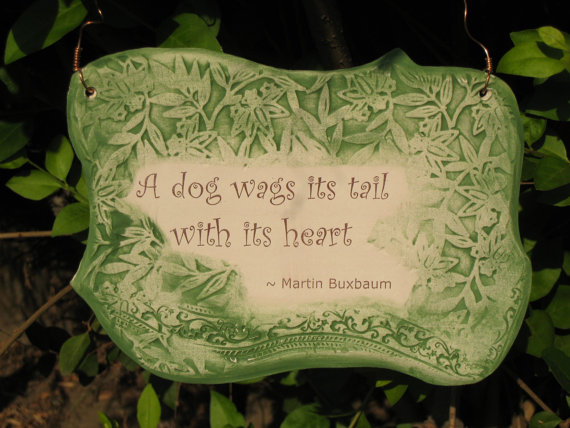 A dog wags its tail
with its heart
~ Martin Buxbaum